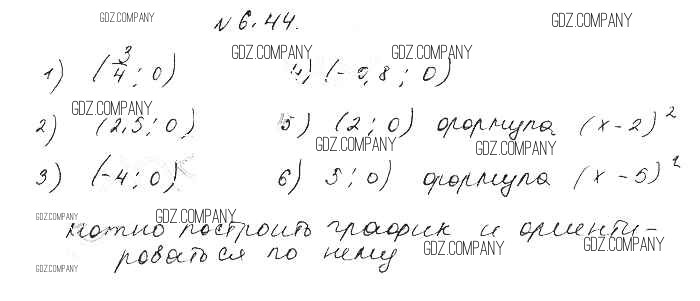 GDZ.COMPANY № 6.44. GDZ.COMPANY
GDZ.COMPANY GDZ.COMPANY
1) (3/4; 0) 4) (-0,8; 0)
GDZ.COMPANY
2) (2,5; 0) 5) (2; 0) формула (x-2)²
GDZ.COMPANY GDZ.COMPANY
3) (-4; 0) 6) 5; 0) формула (x-5)²
GDZ.COMPANY GDZ.COMPANY
можно построить график и ориенти-
GDZ.COMPANY GDZ.COMPANY
роваться по нему
GDZ.COMPANY